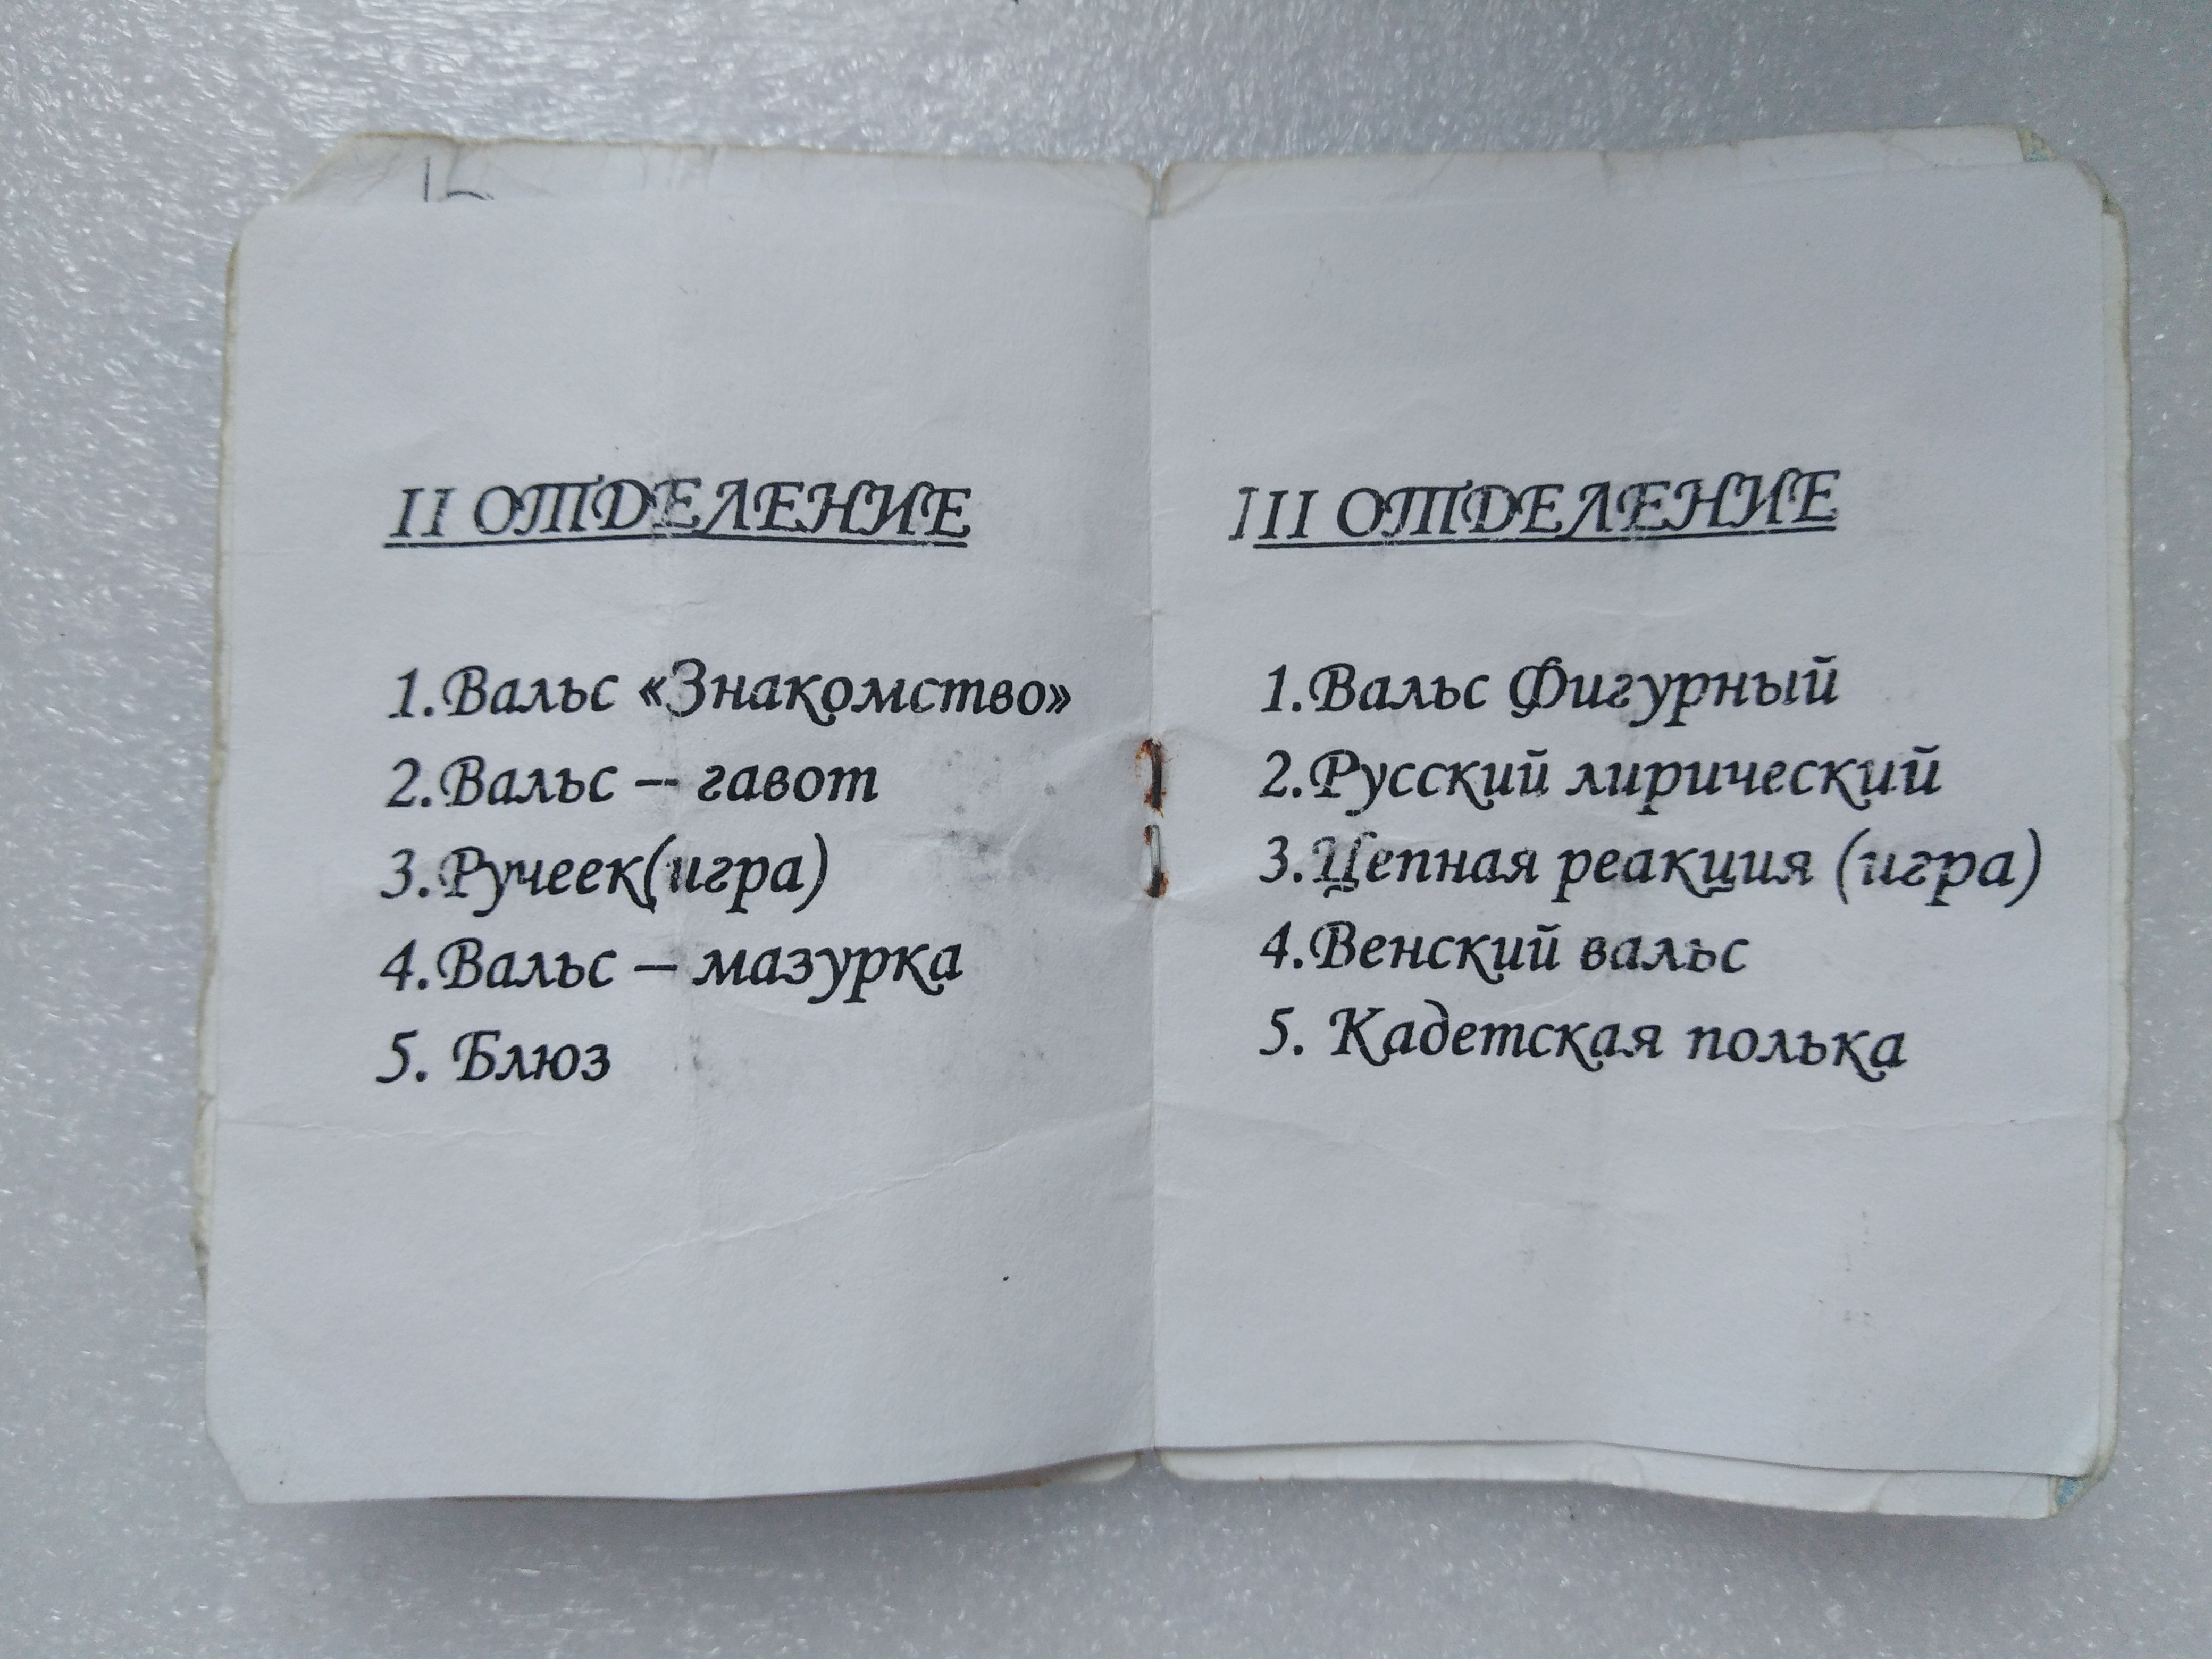 II ОТДЕЛЕНИЕ
1.Вальс «Знакомство»
2.Вальс – гавот
3.Ручеек(игра)
4.Вальс – мазурка
5. Блюз
III ОТДЕЛЕНИЕ
1.Вальс Фигурный
2.Русский лирический
3.Цепная реакция (игра)
4.Венский вальс
5. Кадетская полька